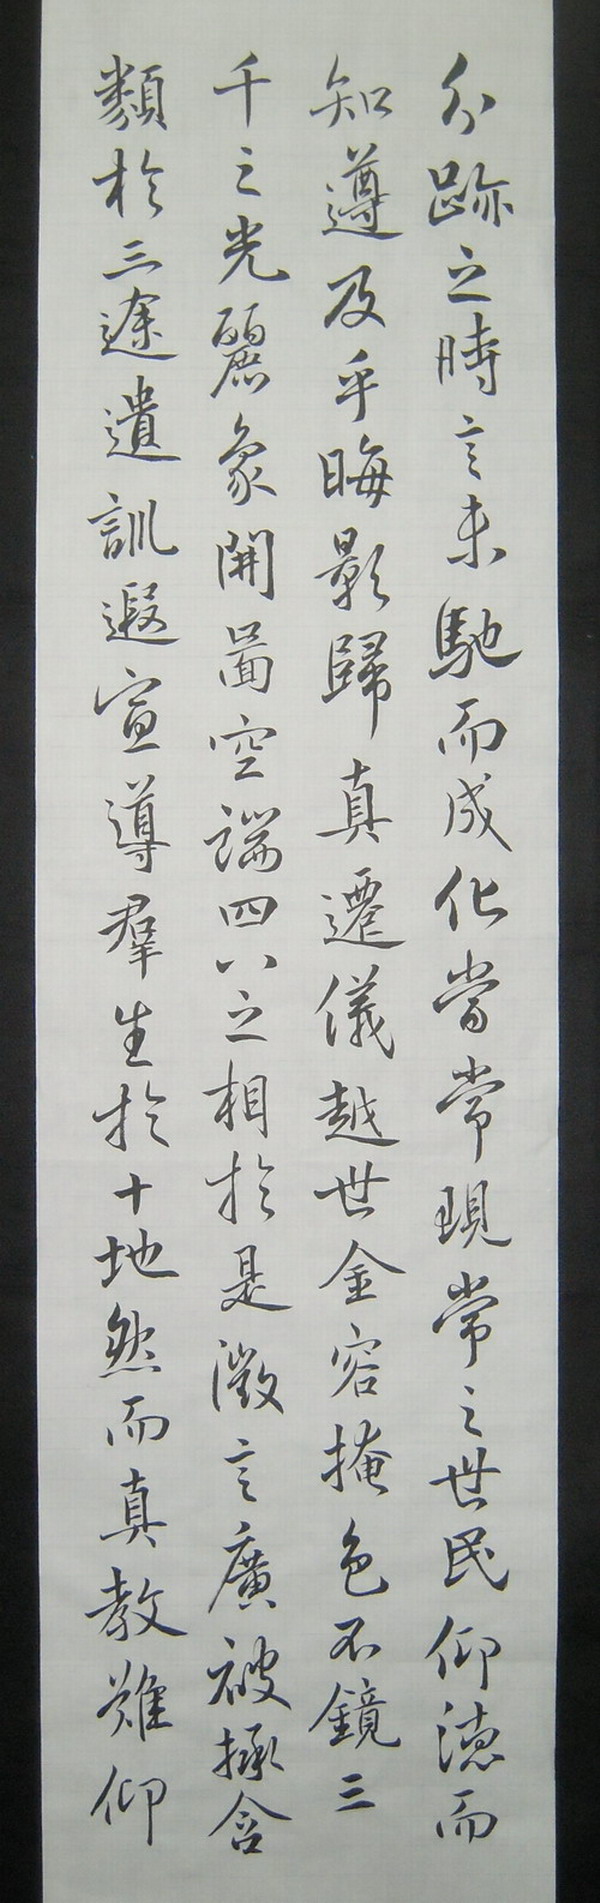 分跡之時言未馳而成化當常現常之世民仰德而
知遵及乎晦影歸真遷儀越世金容掩色不鏡三
千之光麗象開圖空端四八之相於是微言廣被拯含
類於三途遺訓遐宣導羣生於十地然而真教難仰